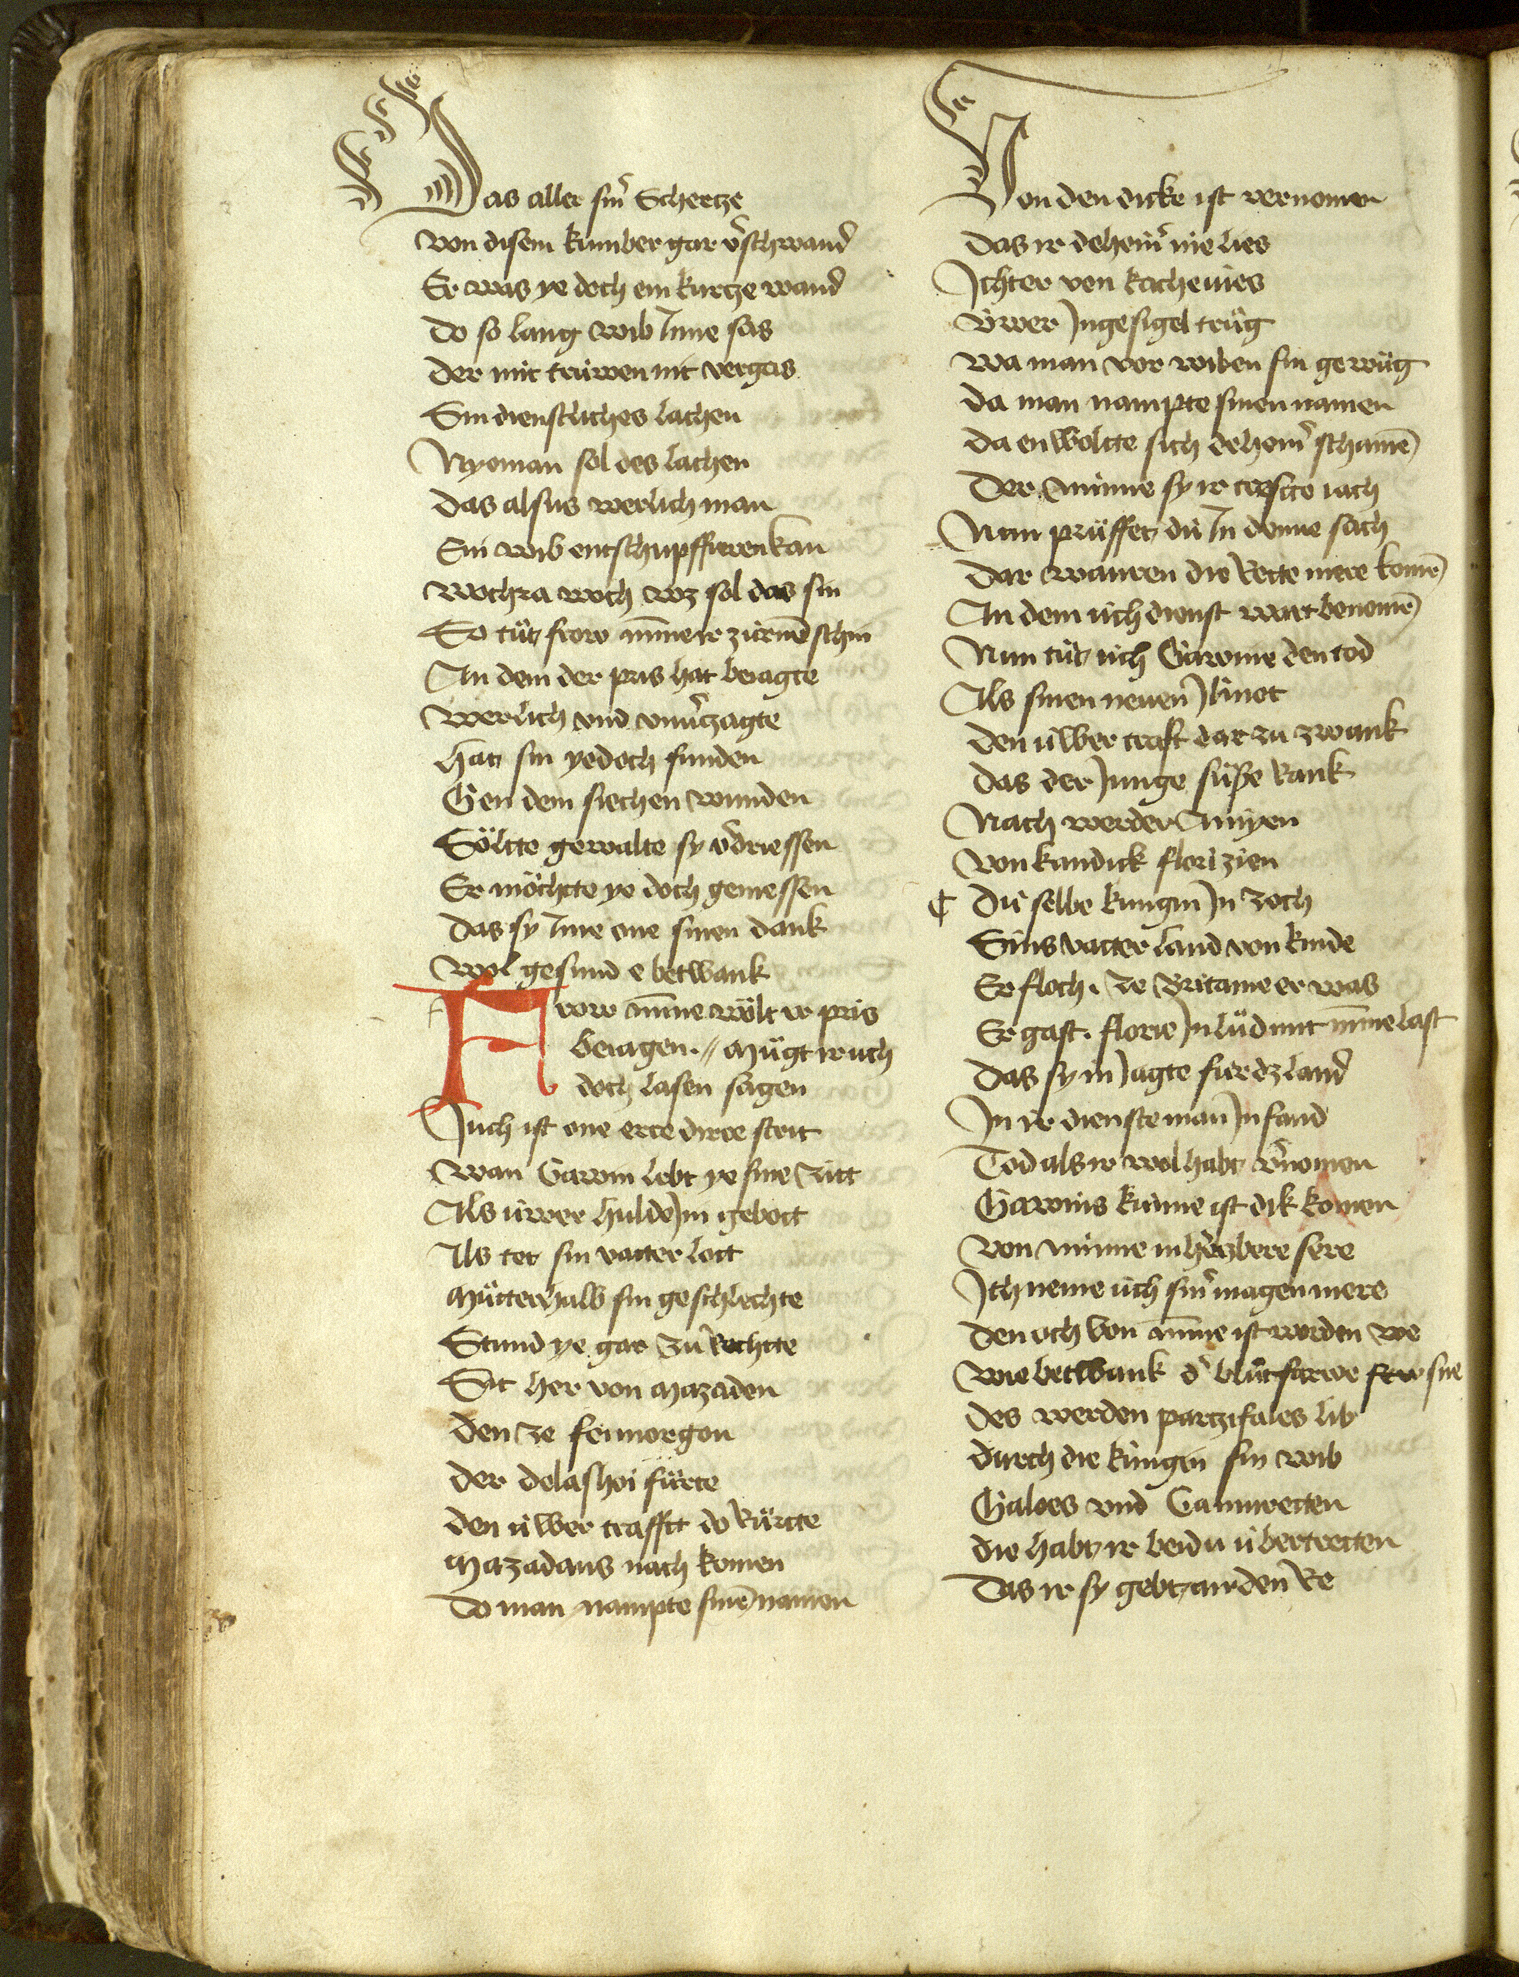 Das aller sinr̄ Schertze
von disem kumber gar v̄schwand
Er was ye doch ein kurcze wand
do so lang wib Inne sas
der mit trüwen nit vergas
Sin dienstliches lachen
Nyeman sol des lachen
das alsus werlich man
Ein wib entschupffieren kan
wochra woch wz sol das sin
So tüt frow minne ir zürnē schin
An dem der pris hat beiagte
werlich vnd vnuˢzagte
hat sin yedoch funden
Gen dem siechen wunden
Söltte gewalte sy vˢdriessen
Er möchtte ye doch geniessen
das sy Inne one sinen dank
wol gesund e betwank
Frow minne wölt ir pris
beiagen. // Mügt ir uch
doch lasen sagen
Juch ist one erre dirre strit
wan Gawin lebt ye sine zitt
Als üwer hulde Jm gebott
Als tet sin vatter lott
Mütterhalb sin geschlechte
Stund ye gar zu Rechtte
Sit her von Mazaden
den ze feimorgon
der delashoi fürte
den üwer trafft do Rürtte
Mazadans nach komen
Do man nampte sinē namen
Von den dicke ist vernomen
das ir deheinˢ nie lies
Jchter von kachevies
üwer Jngesigel trüg
wa man vor wiben sin gewüg
da man nampte sinen namen
da en woltte sich deheinˢ schamē
Der minne sy ir crefte iach
Nun prüffet dü In denne sach
Dar wauren die Rette mere komē
An dem üch dienst wart benomē
Nun tüt üch Gawine den tod
Als sinen neuen Jlinot
den üwer craft dar zu zwank
das der Junge süße Rank
Nach werder Amiyen
von kandick florizien
¶ Dü selbe kungin Jn zoch
Sins vatter land von kinde
Er floch. ze Britanie er was
Er gast. florie Jn lüd mit minne last
das sy in Jagte fur dz land
Jn ir dienste man Jn fand
Tod als ir wol habt vˢnomen
Gawins künne ist dik komen
von minne in hˢczbere sere
Jch neme üch sinˢ magen mere
den och von minne ist worden we
wie betwank dˢ blütfarwe sne
des werden partzifales lib
durch die küngin sin wib
Galoes vnd Gamuretten
die habt ir beidu übertretten
Das ir sy gebt an den Re